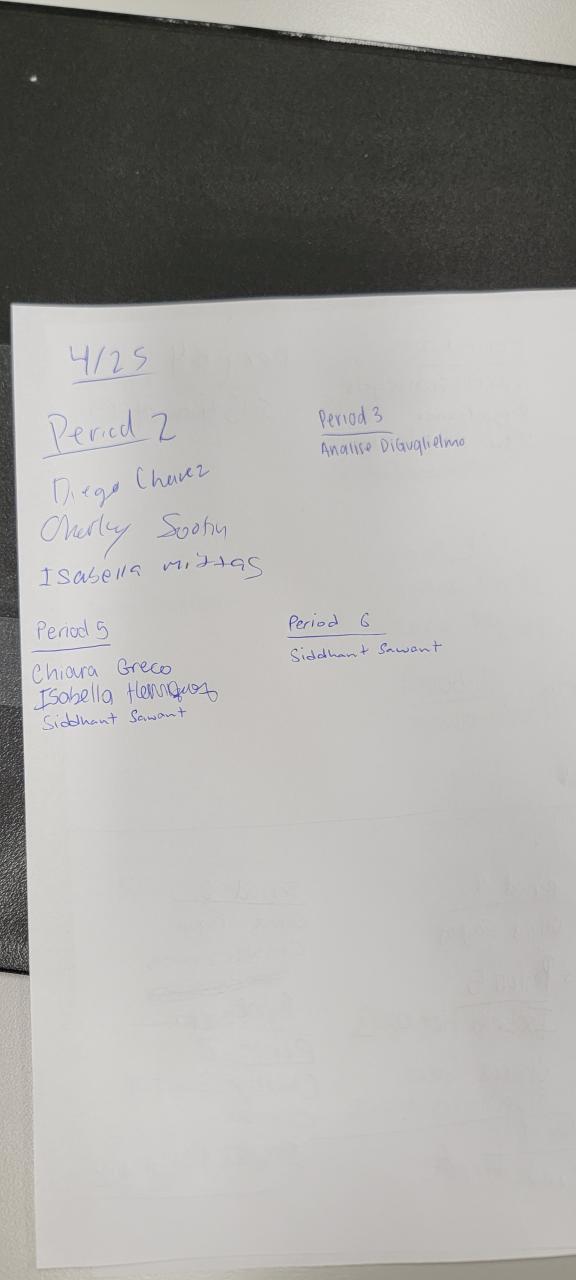 4/25
Period 2
Diego Chavez
Isabella mittas
Period 3
Analise DiGuglielmo
Period 5
Chiara Greco
Isabella
Siddhant Sawant
Period 6
Siddhant Sawant